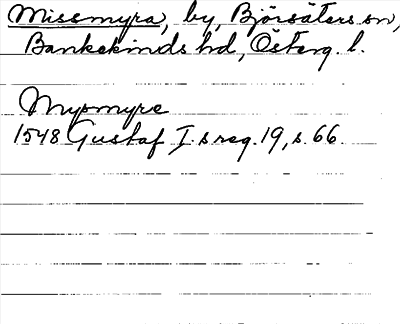 Missmyra, by, Björsäters sn,
Bankekinds hd, Österg. l.
Mysmyre
1548 Gustaf I:s reg. 19, s. 66.